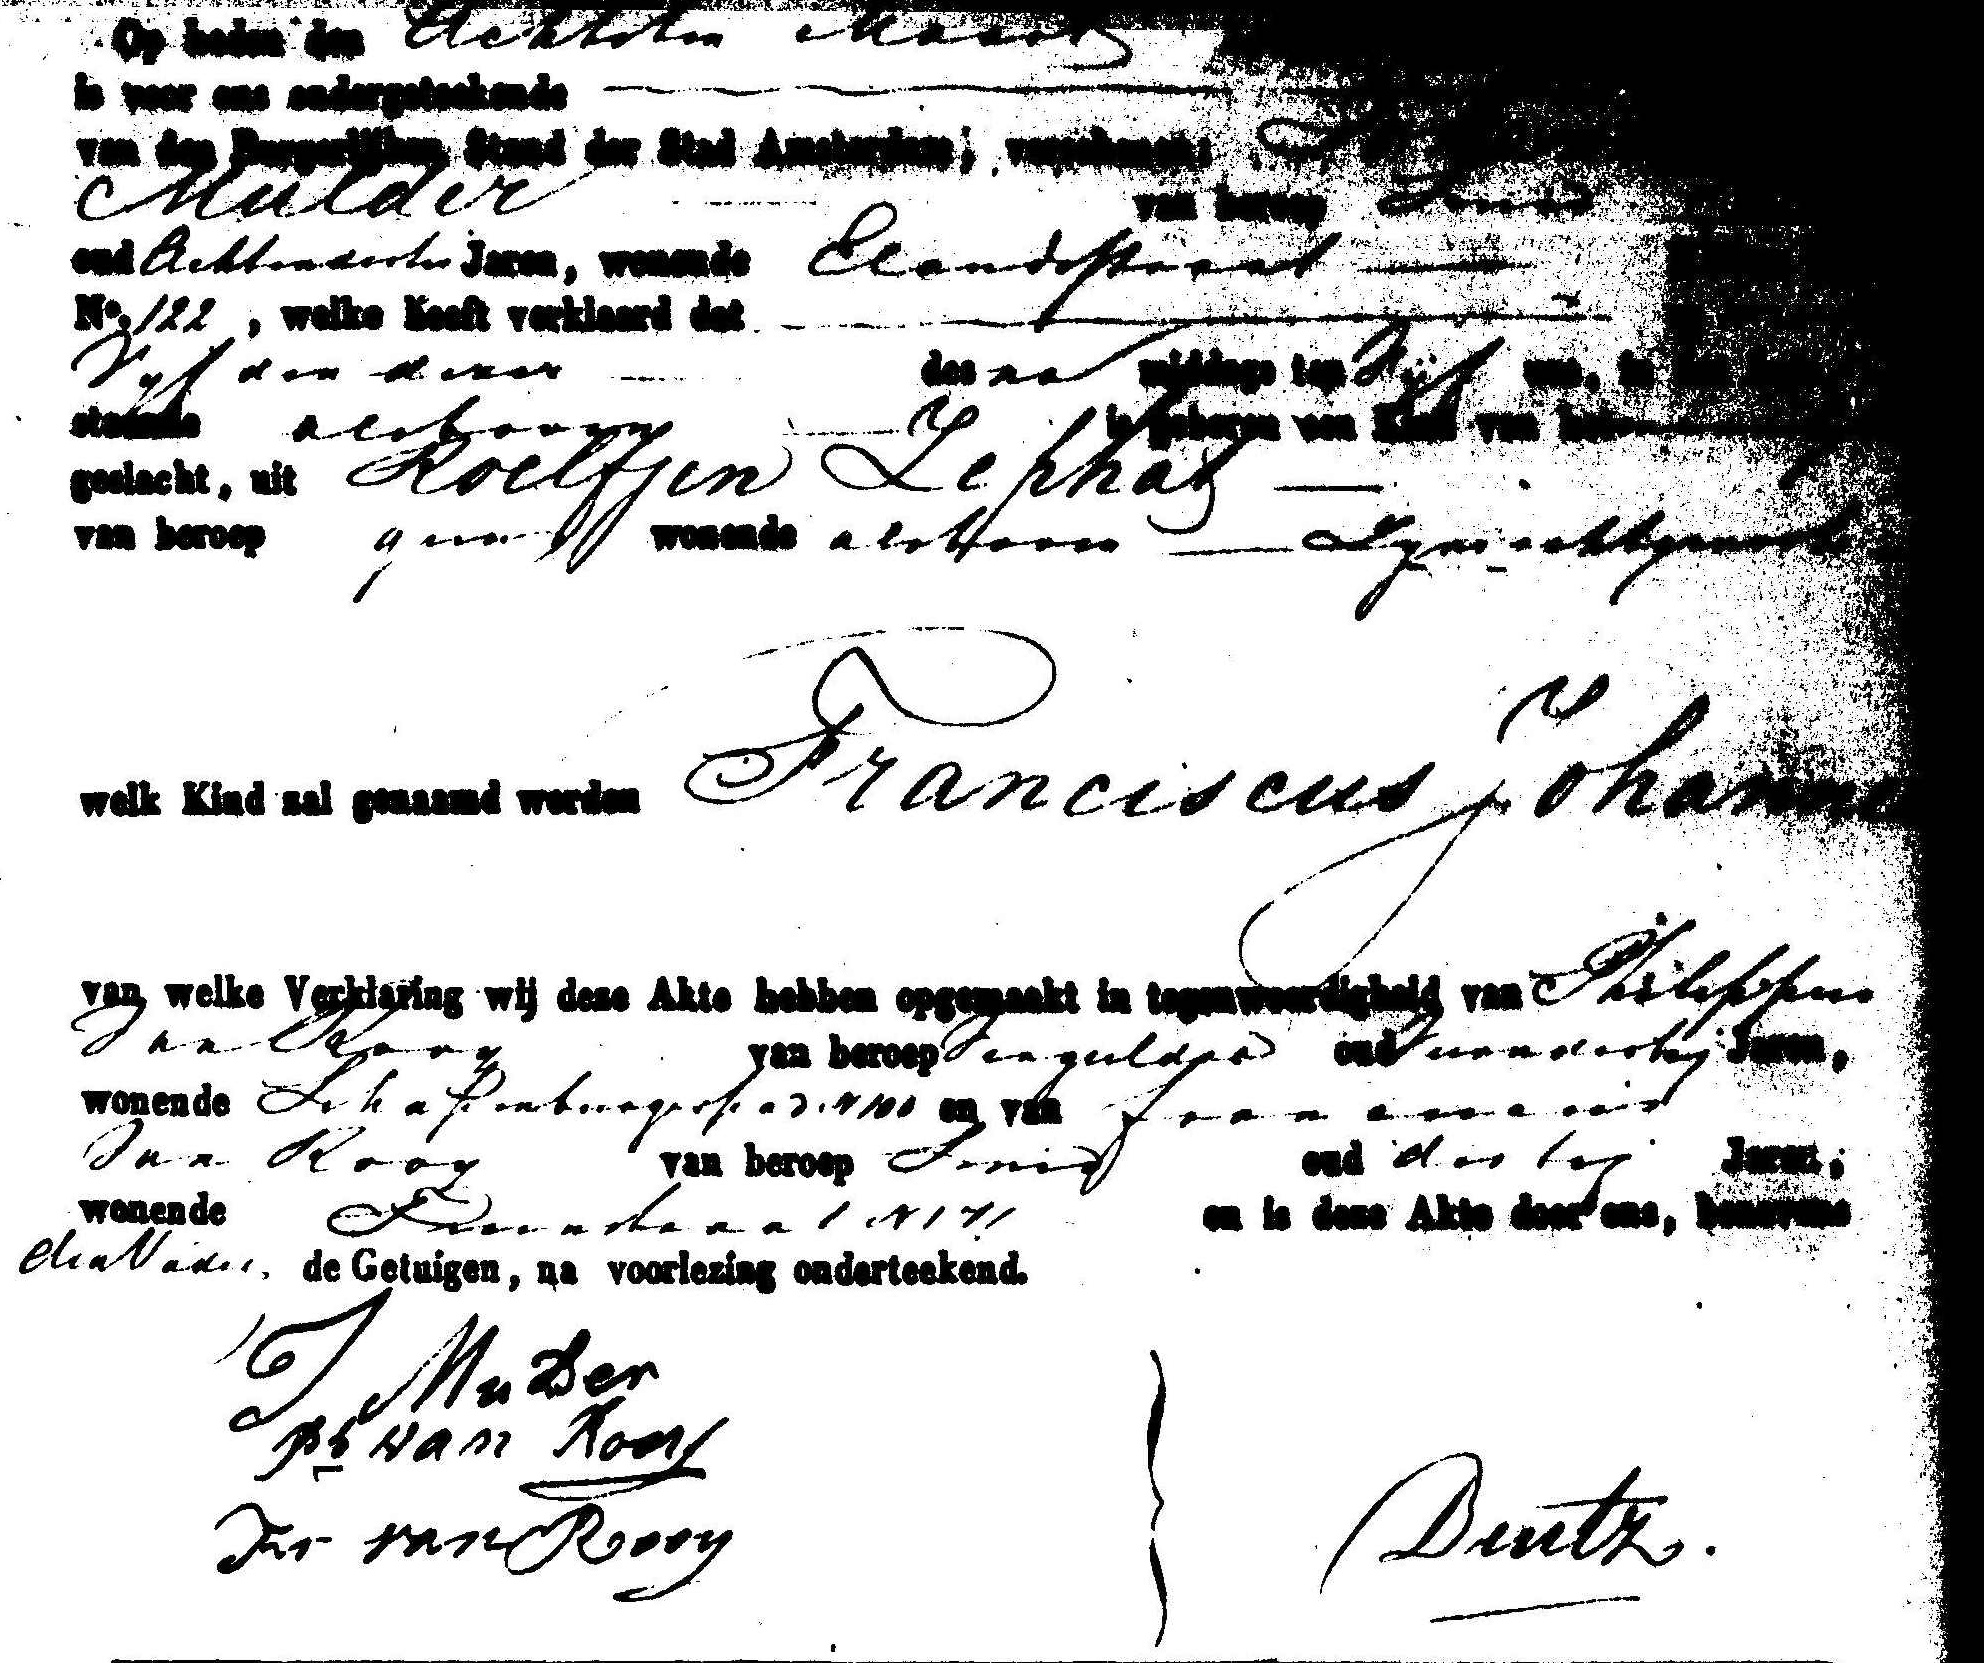 Op heden den Achtsten Maart
is voor ons ondergeteekende
van den Burgerlijken Stand der Stad Amsterdam, verschenen:
Mulder van beroep Smid
oud Achtendertig Jaren, wonende Elandsstraat
No. 122, welke heeft verklaard dat
Vyf den dezer des na middags ten Vijf ure, in
alsboven is geboren een Kind van het
geslacht, uit Roelfjen Zephat
van beroep geen wonende alsboven Zyne echtgenoote
welk Kind zal genaamd worden Franciscus Johanne
van welke Verklaring wij deze Akte hebben opgemaakt in tegenwoordigheid van Philippus
Van Rooy van beroep Vergulder oud Jaren,
wonende N 100 en van Franciscus
Van Rooy van beroep Smid oud dertig Jaren;
wonende en is deze Akte door ons, benevens
den Vader, de Getuigen, na voorlezing onderteekend.
J Mulder
Ph van Rooy
Fr van Rooy
Bentz.